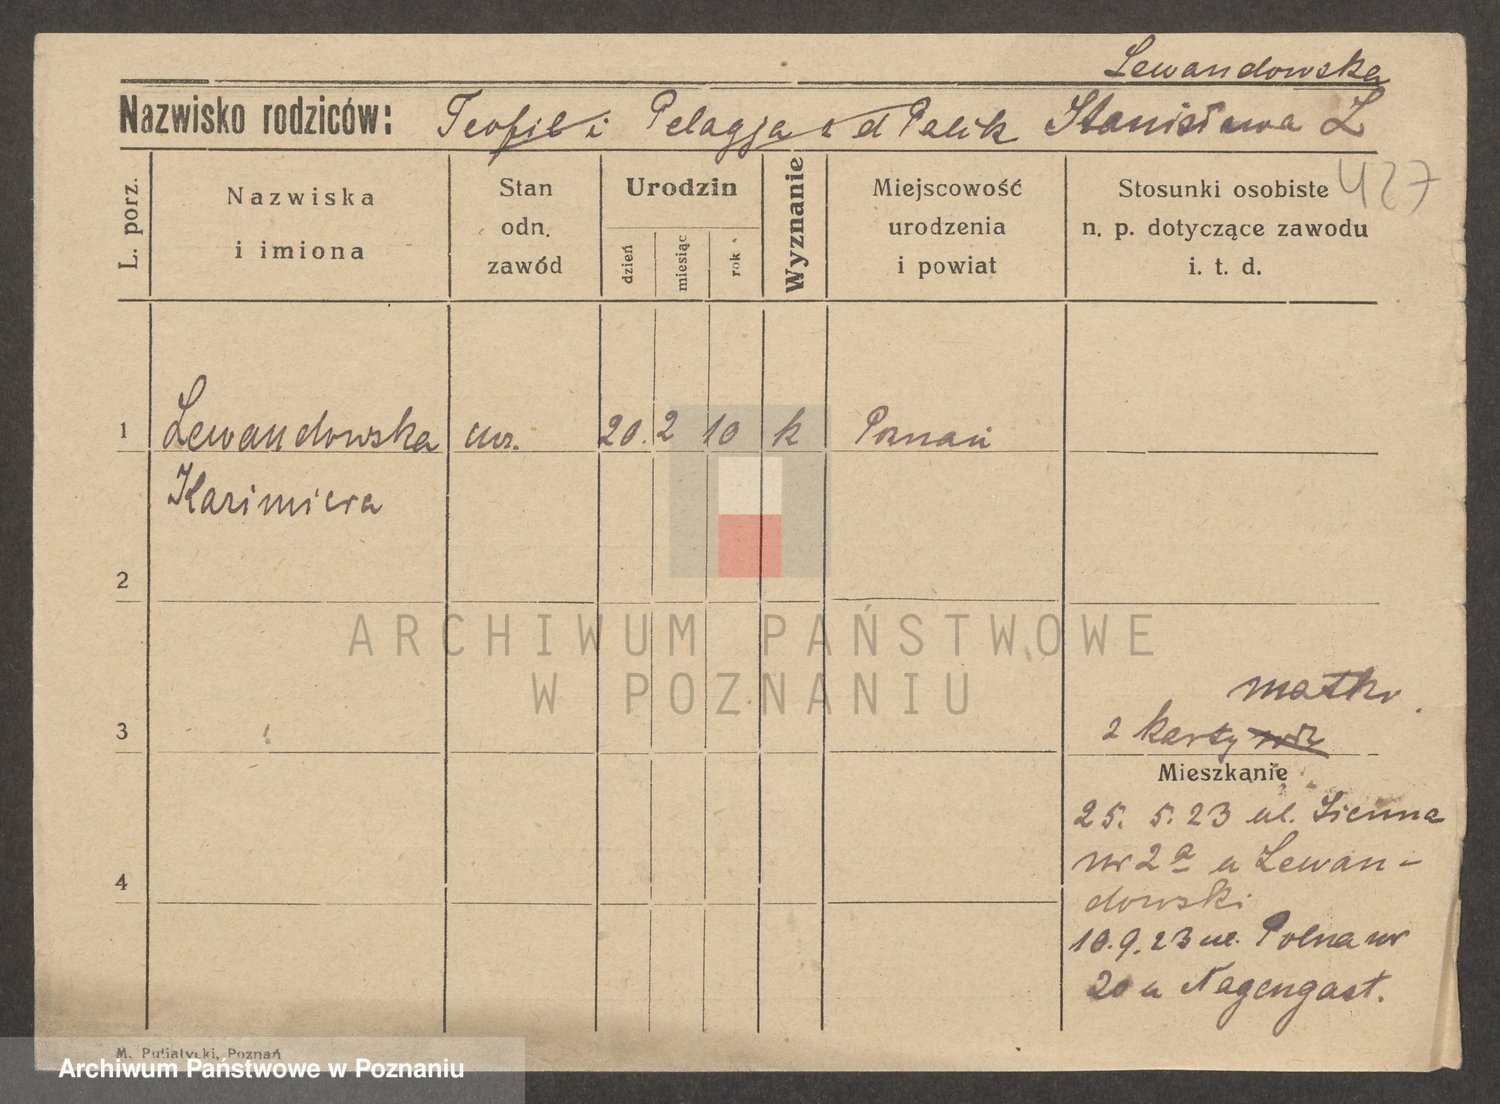 Lewandowska
Nazwisko rodziców: Teofil i Pelagja z d Palik Stanisława L
427
L. porz.
Nazwiska
i imiona
Stan
odn.
zawód
Urodzin
dzień
miesiąc
rok
Wyznanie
Miejscowość
urodzenia
i powiat
Stosunki osobiste
n. p. dotyczące zawodu
i. t. d.
1 Lewandowska 20. 2 10 k Poznań
Kazimiera
2
3
matki
2 karty
Mieszkanie
25. 5. 23 ul. Sienna
nr 2a u Lewan-
dowski
4
10. 9. 23 ul. Polna nr
20 u Nagengast.
M. Putiatycki, Poznań
ARCHIWUM PAŃSTWOWE
W POZNANIU
Archiwum Państwowe w Poznaniu